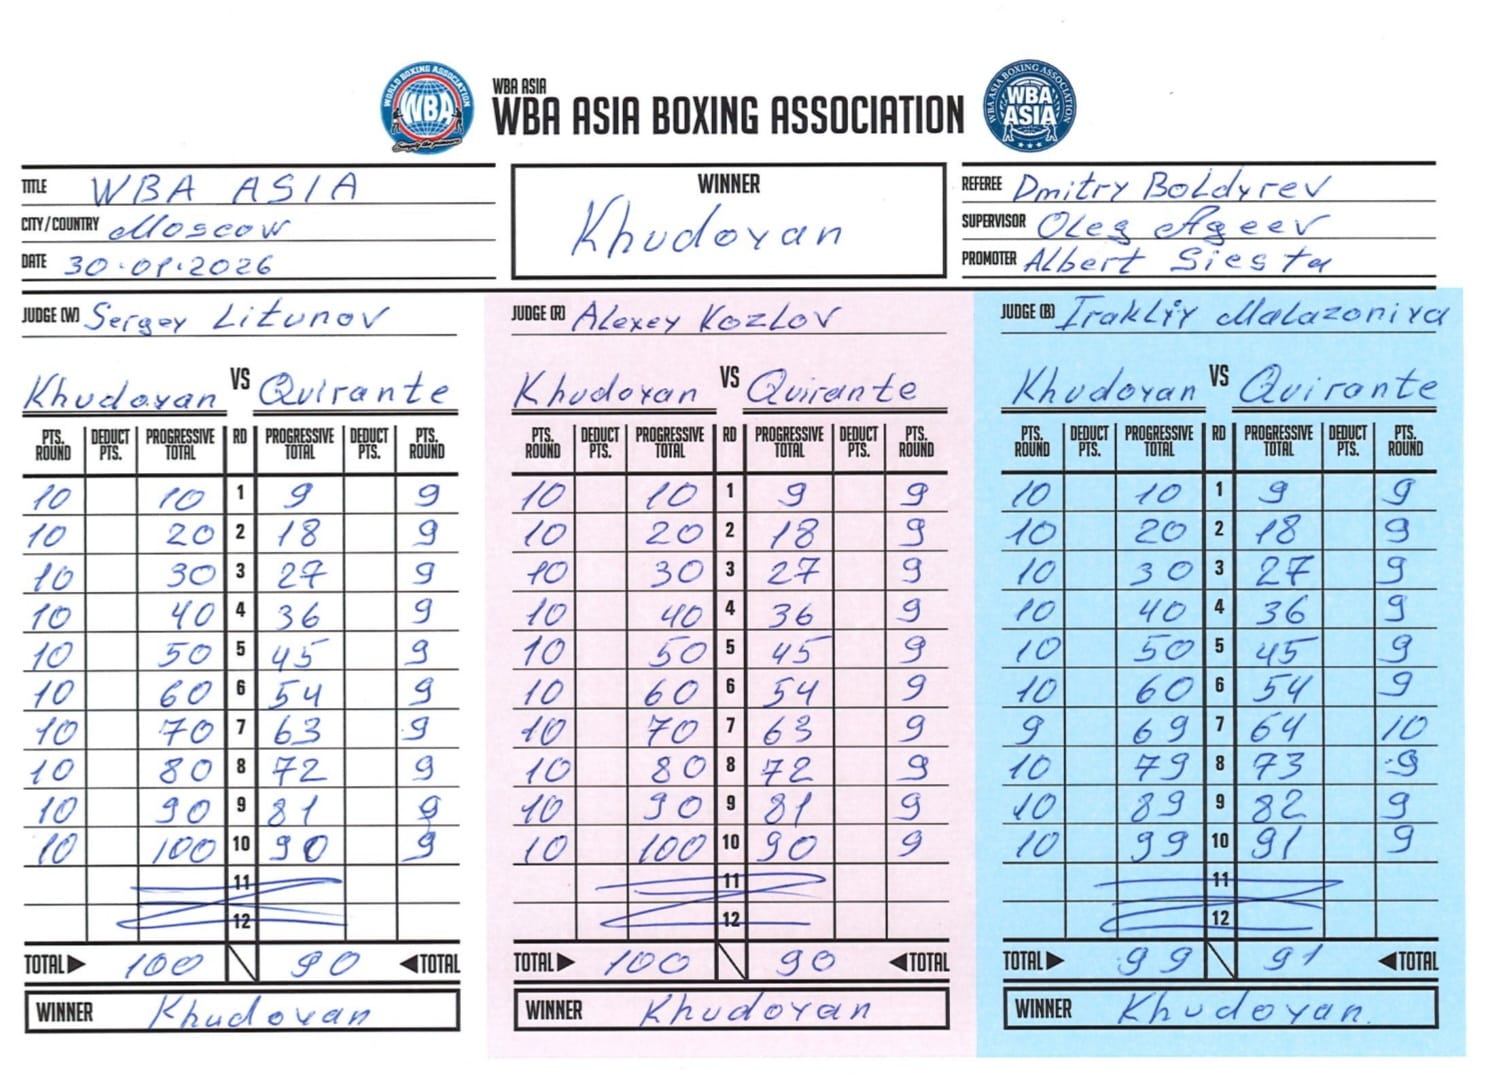 WORLD BOXING ASSOCIATION
WBA
Simply the pioneers
WBA ASIA
WBA ASIA BOXING ASSOCIATION
WBA ASIA BOXING ASSOCIATION
WBA
ASIA
TITLE WBA ASIA
CITY/COUNTRY Moscow
DATE 30.01.2026
WINNER
Khudoyan
REFEREE Dmitry Boldyrev
SUPERVISOR Oleg Ageev
PROMOTER Albert Siesta
JUDGE (W) Sergey Litunov
Khudoyan VS Quirante
PTS. ROUND DEDUCT PTS. PROGRESSIVE TOTAL RD PROGRESSIVE TOTAL DEDUCT PTS. PTS. ROUND
10 10 1 9 9
10 20 2 18 9
10 30 3 27 9
10 40 4 36 9
10 50 5 45 9
10 60 6 54 9
10 70 7 63 9
10 80 8 72 9
10 90 9 81 9
10 100 10 90 9
11
12
TOTAL 100 90 TOTAL
WINNER Khudoyan
JUDGE (R) Alexey Kozlov
Khudoyan VS Quirante
PTS. ROUND DEDUCT PTS. PROGRESSIVE TOTAL RD PROGRESSIVE TOTAL DEDUCT PTS. PTS. ROUND
10 10 1 9 9
10 20 2 18 9
10 30 3 27 9
10 40 4 36 9
10 50 5 45 9
10 60 6 54 9
10 70 7 63 9
10 80 8 72 9
10 90 9 81 9
10 100 10 90 9
11
12
TOTAL 100 90 TOTAL
WINNER Khudoyan
JUDGE (B) Irakliy Malazoniya
Khudoyan VS Quirante
PTS. ROUND DEDUCT PTS. PROGRESSIVE TOTAL RD PROGRESSIVE TOTAL DEDUCT PTS. PTS. ROUND
10 10 1 9 9
10 20 2 18 9
10 30 3 27 9
10 40 4 36 9
10 50 5 45 9
10 60 6 54 9
9 69 7 64 10
10 79 8 73 9
10 89 9 82 9
10 99 10 91 9
11
12
TOTAL 99 91 TOTAL
WINNER Khudoyan